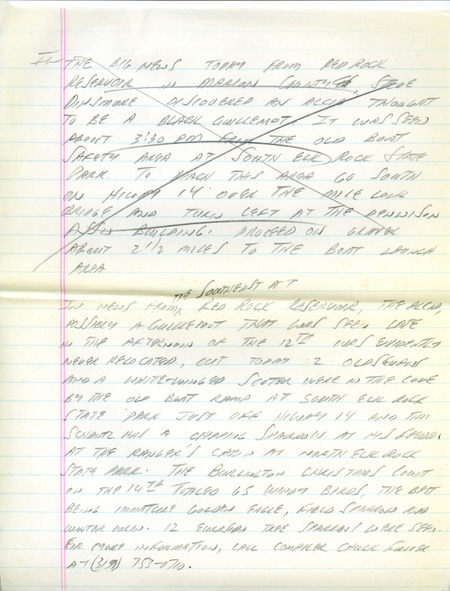 THE BIG NEWS TODAY FROM RED ROCK
RESERVOIR IN MARION COUNTY, STEVE
DINSMORE DISCOVERED AN ALCID THOUGHT
TO BE A BLACK GUILLEMOT. IT WAS SEEN
ABOUT 3:30 PM FROM THE OLD BOAT
SAFETY AREA AT SOUTH ELK ROCK STATE
PARK. TO REACH THIS AREA GO SOUTH
ON HIWAY 14 OVER THE MILE LONG
BRIDGE AND TURN LEFT AT THE DENNISON
BUILDING. PROCEED ON GRAVEL
ABOUT 2 1/2 MILES TO THE BOAT LAUNCH
AREA
THE SOUTHEAST AT
IN NEWS FROM RED ROCK RESERVOIR, THE ALCID,
POSSIBLY A GUILLEMOT THAT WAS SEEN LATE
IN THE AFTERNOON OF THE 12TH WAS EVIDENTLY
NEVER RELOCATED, BUT TODAY 2 OLDSQUAWS
AND A WHITE-WINGED SCOTER WERE IN THE COVE
BY THE OLD BOAT RAMP AT SOUTH ELK ROCK
STATE PARK JUST OFF HIWAY 14 AND TIM
SCHANTZ HAS A CHIPPING SPARROW AT HIS FEEDER
AT THE RANGER'S CABIN AT NORTH ELK ROCK
STATE PARK. THE BURLINGTON CHRISTMAS COUNT
ON THE 14TH TOTALED 65 BIRDS, THE BEST
BEING IMMATURE GOLDEN EAGLE, FIELD SPARROW AND
WINTER WREN. 12 EURASIAN TREE SPARROWS WERE SEEN.
FOR MORE INFORMATION, CALL COMPILER CHUCK FULLER
AT (319) 753-0710.